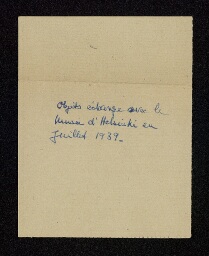 Objets échangés avec le
Musée d'Helsinki en
Juillet 1939.